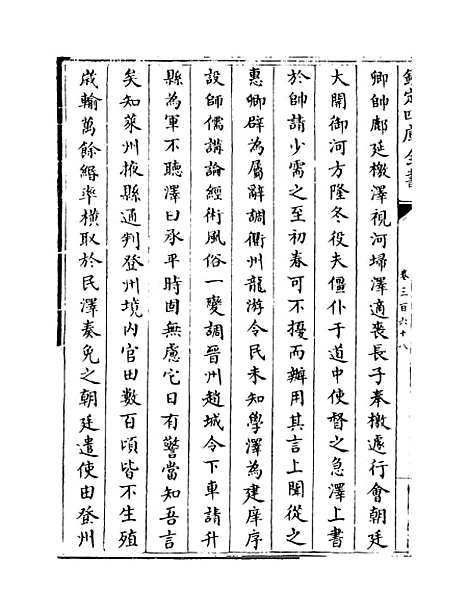 欽定四庫全書
卷三百六十八
卿帥鄜延檄澤視河埽澤適喪長子奉檄遽行會朝廷
大開御河方隆冬役夫僵仆于道中使督之急澤上書
於帥請少需之至初春可不擾而辦用其言上聞從之
惠卿辟為屬辭調衢州龍游令民未知學澤為建庠序
設師儒講論經術風俗一變調晉州趙城令下車請升
縣為軍不聽澤曰承平時固無慮它日有警當知吾言
矣知萊州掖縣通判登州境内官田數百頃皆不生殖
歲輸萬餘緡率横取於民澤奏免之朝廷遣使由登州